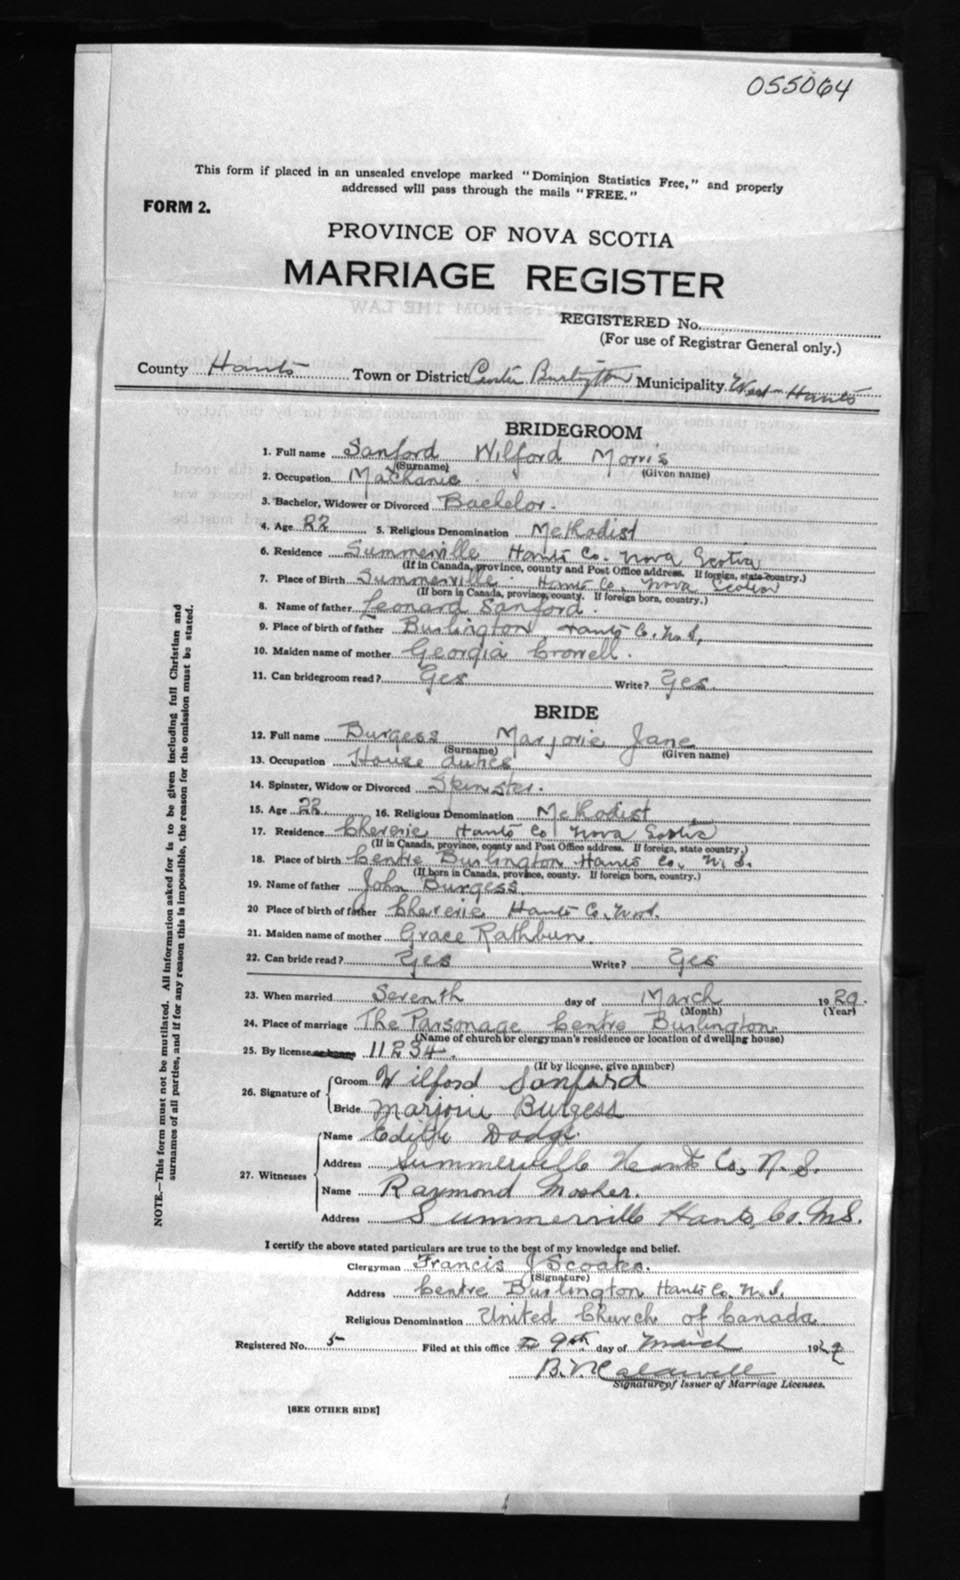 055064
This form if placed in an unsealed envelope marked "Dominion Statistics Free," and properly
addressed will pass through the mails "FREE."
FORM 2.
PROVINCE OF NOVA SCOTIA
MARRIAGE REGISTER
REGISTERED No.
(For use of Registrar General only.)
County Hants Town or District Center Burlington Municipality West Hants
BRIDEGROOM
1. Full name Sanford Wilford Morris
(Surname) (Given name)
2. Occupation Mechanic
3. Bachelor, Widower or Divorced Bachelor.
4. Age 22 5. Religious Denomination Methodist
6. Residence Summerville Hants Co. Nova Scotia
(If in Canada, province, county and Post Office address. If foreign, state country.)
7. Place of Birth Summerville Hants Co. Nova Scotia
(If born in Canada, province, county. If foreign born, country.)
8. Name of father Leonard Sanford.
9. Place of birth of father Burlington Hants Co. N.S.
10. Maiden name of mother Georgia Crowell.
11. Can bridegroom read? Yes Write? Yes.
BRIDE
12. Full name Burgess Marjorie Jane
(Surname) (Given name)
13. Occupation House duties
14. Spinster, Widow or Divorced Spinster.
15. Age 22. 16. Religious Denomination Methodist
17. Residence Cheverie Hants Co Nova Scotia
(If in Canada, province, county and Post Office address. If foreign, state country.)
18. Place of birth Centre Burlington Hants Co. N.S.
(If born in Canada, province, county. If foreign born, country.)
19. Name of father John Burgess.
20 Place of birth of father Cheverie Hants Co. N.S.
21. Maiden name of mother Grace Rathbun.
22. Can bride read? Yes Write? Yes
23. When married Seventh day of March 1929.
(Month) (Year)
24. Place of marriage The Parsonage Centre Burlington
(Name of church or clergyman's residence or location of dwelling house)
25. By license 11234.
(If by license, give number)
26. Signature of Groom Wilford Sanford
Bride Marjorie Burgess
27. Witnesses Name Edith Dodge
Address Summerville Hants Co, N.S.
Name Raymond Mosher.
Address Summerville Hants, Co. N.S.
I certify the above stated particulars are true to the best of my knowledge and belief.
Clergyman Francis J Scoates.
(Signature)
Address Centre Burlington Hants Co. N.S.
Religious Denomination United Church of Canada
Registered No. 5 Filed at this office 9th day of March 1929
B. N. Caldwell
Signature of Issuer of Marriage Licenses.
[SEE OTHER SIDE]
NOTE.—This form must not be mutilated. All information asked for is to be given including full Christian and
surnames of all parties, and if for any reason this is impossible, the reason for the omission must be stated.